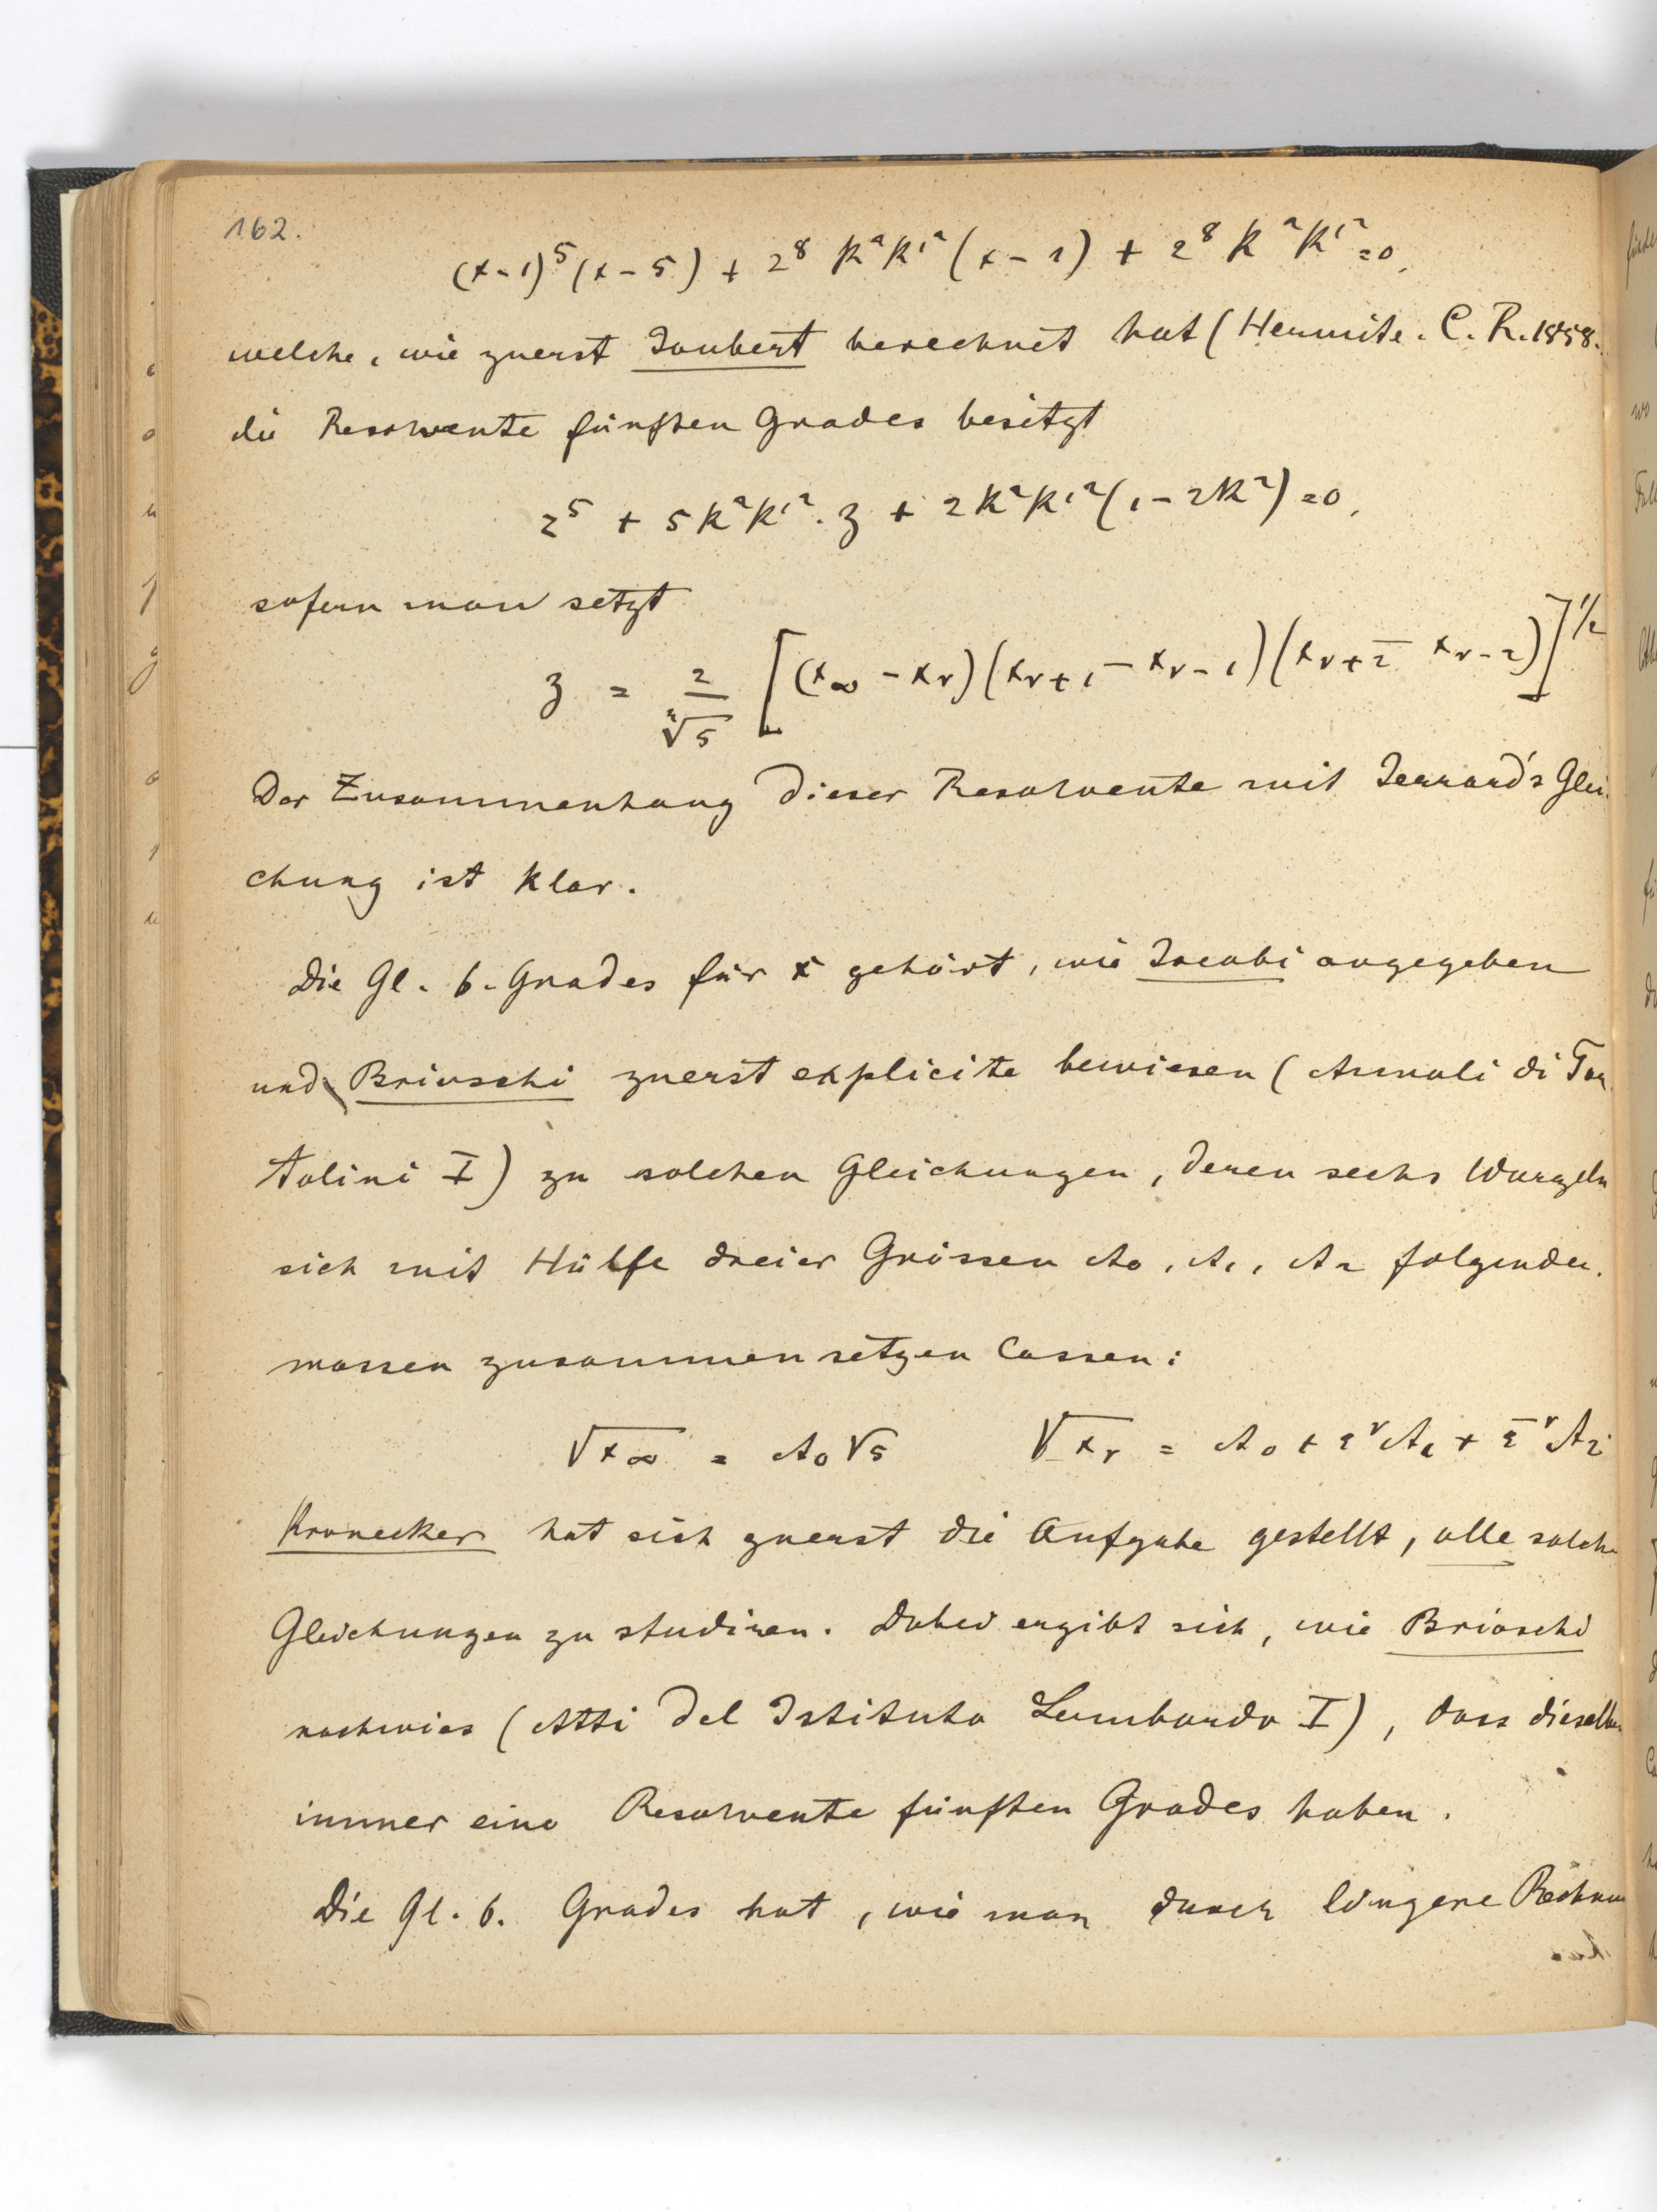 162.
(x-1)⁵(x-5) + 2⁸ k²k'²(x-1) + 2⁸ k²k'² = 0,
welche, wie zuerst Joubert berechnet hat (Hermite. C. R. 1858.
die Resolvente fünften Grades besitzt
z⁵ + 5k²k'². z + 2k²k'²(1-2k²) = 0,
sofern man setzt
z = 2/∜5 [(x∞ - xν)(xν+1 - xν-1)(xν+2 - xν-2)]^1/2
Der Zusammenhang dieser Resolvente mit Jerrard's Glei-
chung ist klar.
Die Gl. 6. Grades für x gehört, wie Jacobi angegeben
und Brioschi zuerst explicite bewiesen (Annali di Tor
tolini I) zu solchen Gleichungen, deren sechs Wurzeln
sich mit Hülfe dreier Grössen A0, A1, A2 folgender-
massen zusammensetzen lassen:
√x∞ = A0√5 √xν = A0 + ε^ν A1 + ε^-ν A2
Kronecker hat sich zuerst die Aufgabe gestellt, alle solche
Gleichungen zu studiren. Dabei ergibt sich, wie Brioschi
nachwies (Atti del Istituto Lombardo I), dass dieselben
immer eine Resolvente fünften Grades haben.
Die Gl. 6. Grades hat, wie man durch längere Rechnun